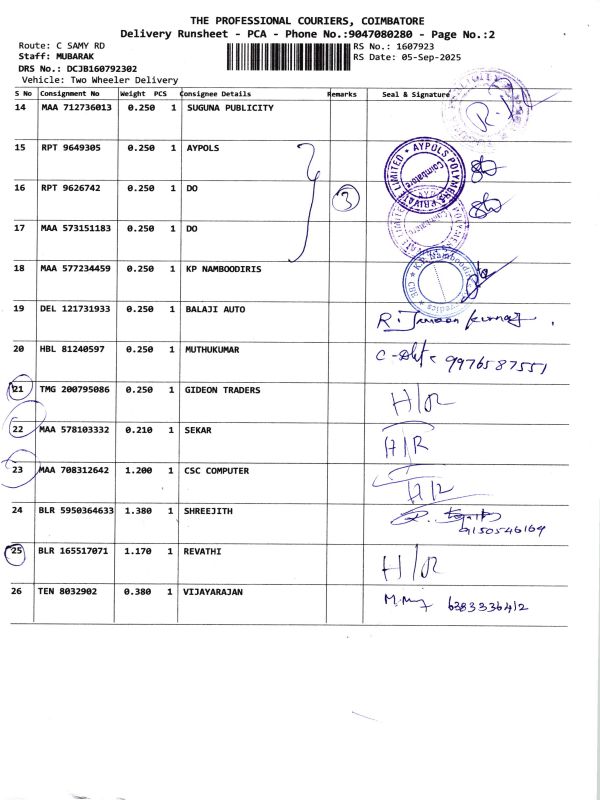 THE PROFESSIONAL COURIERS, COIMBATORE
Delivery Runsheet - PCA - Phone No.:9047080280 - Page No.:2
Route: C SAMY RD
RS No.: 1607923
Staff: MUBARAK
RS Date: 05-Sep-2025
DRS No.: DCJB160792302
Vehicle: Two Wheeler Delivery
S No Consignment No Weight PCS Consignee Details Remarks Seal & Signature
14 MAA 712736013 0.250 1 SUGUNA PUBLICITY
15 RPT 9649305 0.250 1 AYPOLS AYPOLS POLYMERS PRIVATE LIMITED Coimbatore
16 RPT 9626742 0.250 1 DO 3
17 MAA 573151183 0.250 1 DO
18 MAA 577234459 0.250 1 KP NAMBOODIRIS
19 DEL 121731933 0.250 1 BALAJI AUTO
20 HBL 81240597 0.250 1 MUTHUKUMAR 9976587551
21 TMG 200795086 0.250 1 GIDEON TRADERS H/R
22 MAA 578103332 0.210 1 SEKAR H/R
23 MAA 708312642 1.200 1 CSC COMPUTER H/R
24 BLR 5950364633 1.380 1 SHREEJITH 9150546169
25 BLR 165517071 1.170 1 REVATHI H/R
26 TEN 8032902 0.380 1 VIJAYARAJAN 6383336412